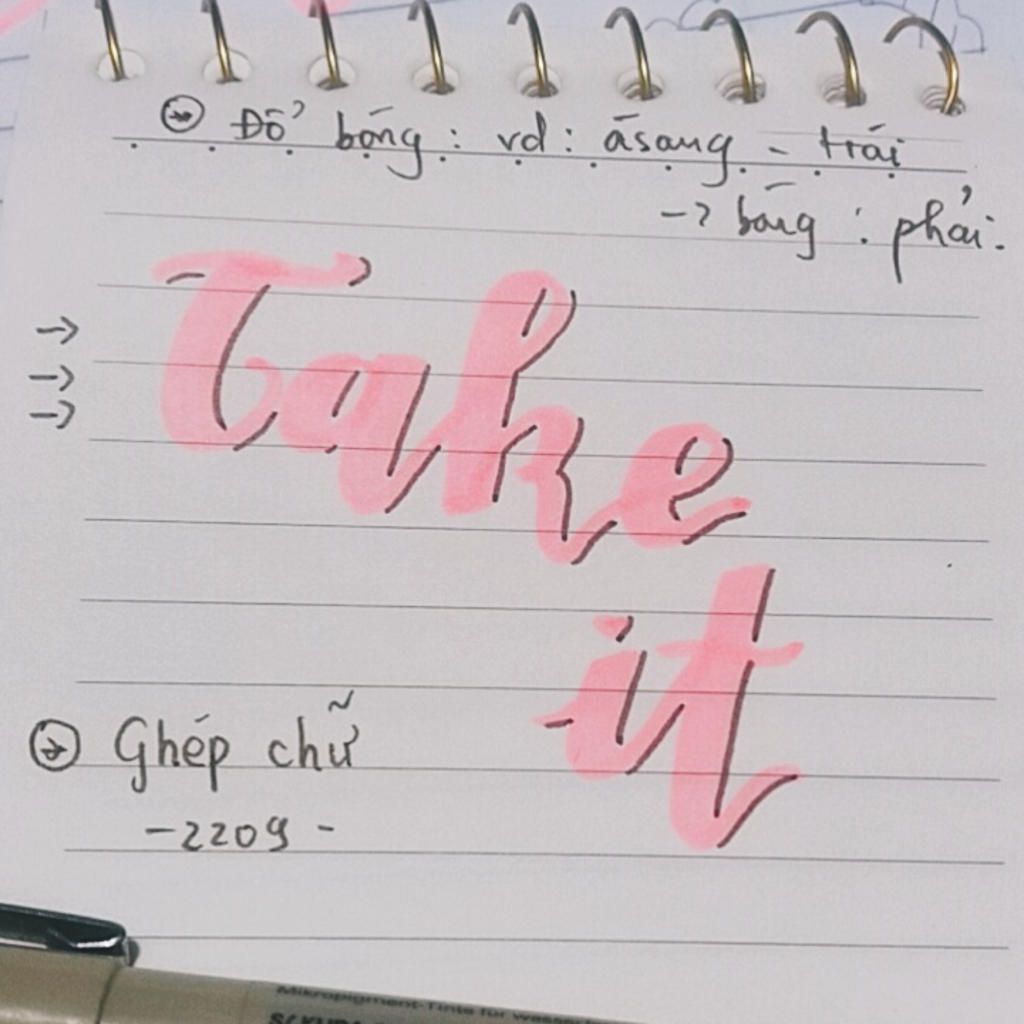 Đổ bóng : vd : ásang - trái
→ bóng : phải.
Take
it
Ghép chữ
- 2209 -
Mikropigment-Tinte für wasser
SAKURA